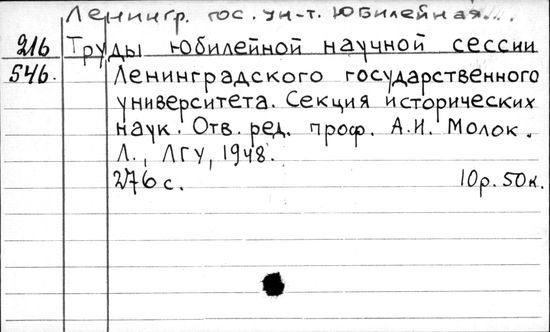 Ленингр. гос. ун-т. Юбилейная...
216 Труды юбилейной научной сессии
546. Ленинградского государственного
университета. Секция исторических
наук. Отв. ред. проф. А.И. Молок.
Л., ЛГУ, 1948.
276 с. 10р. 50к.